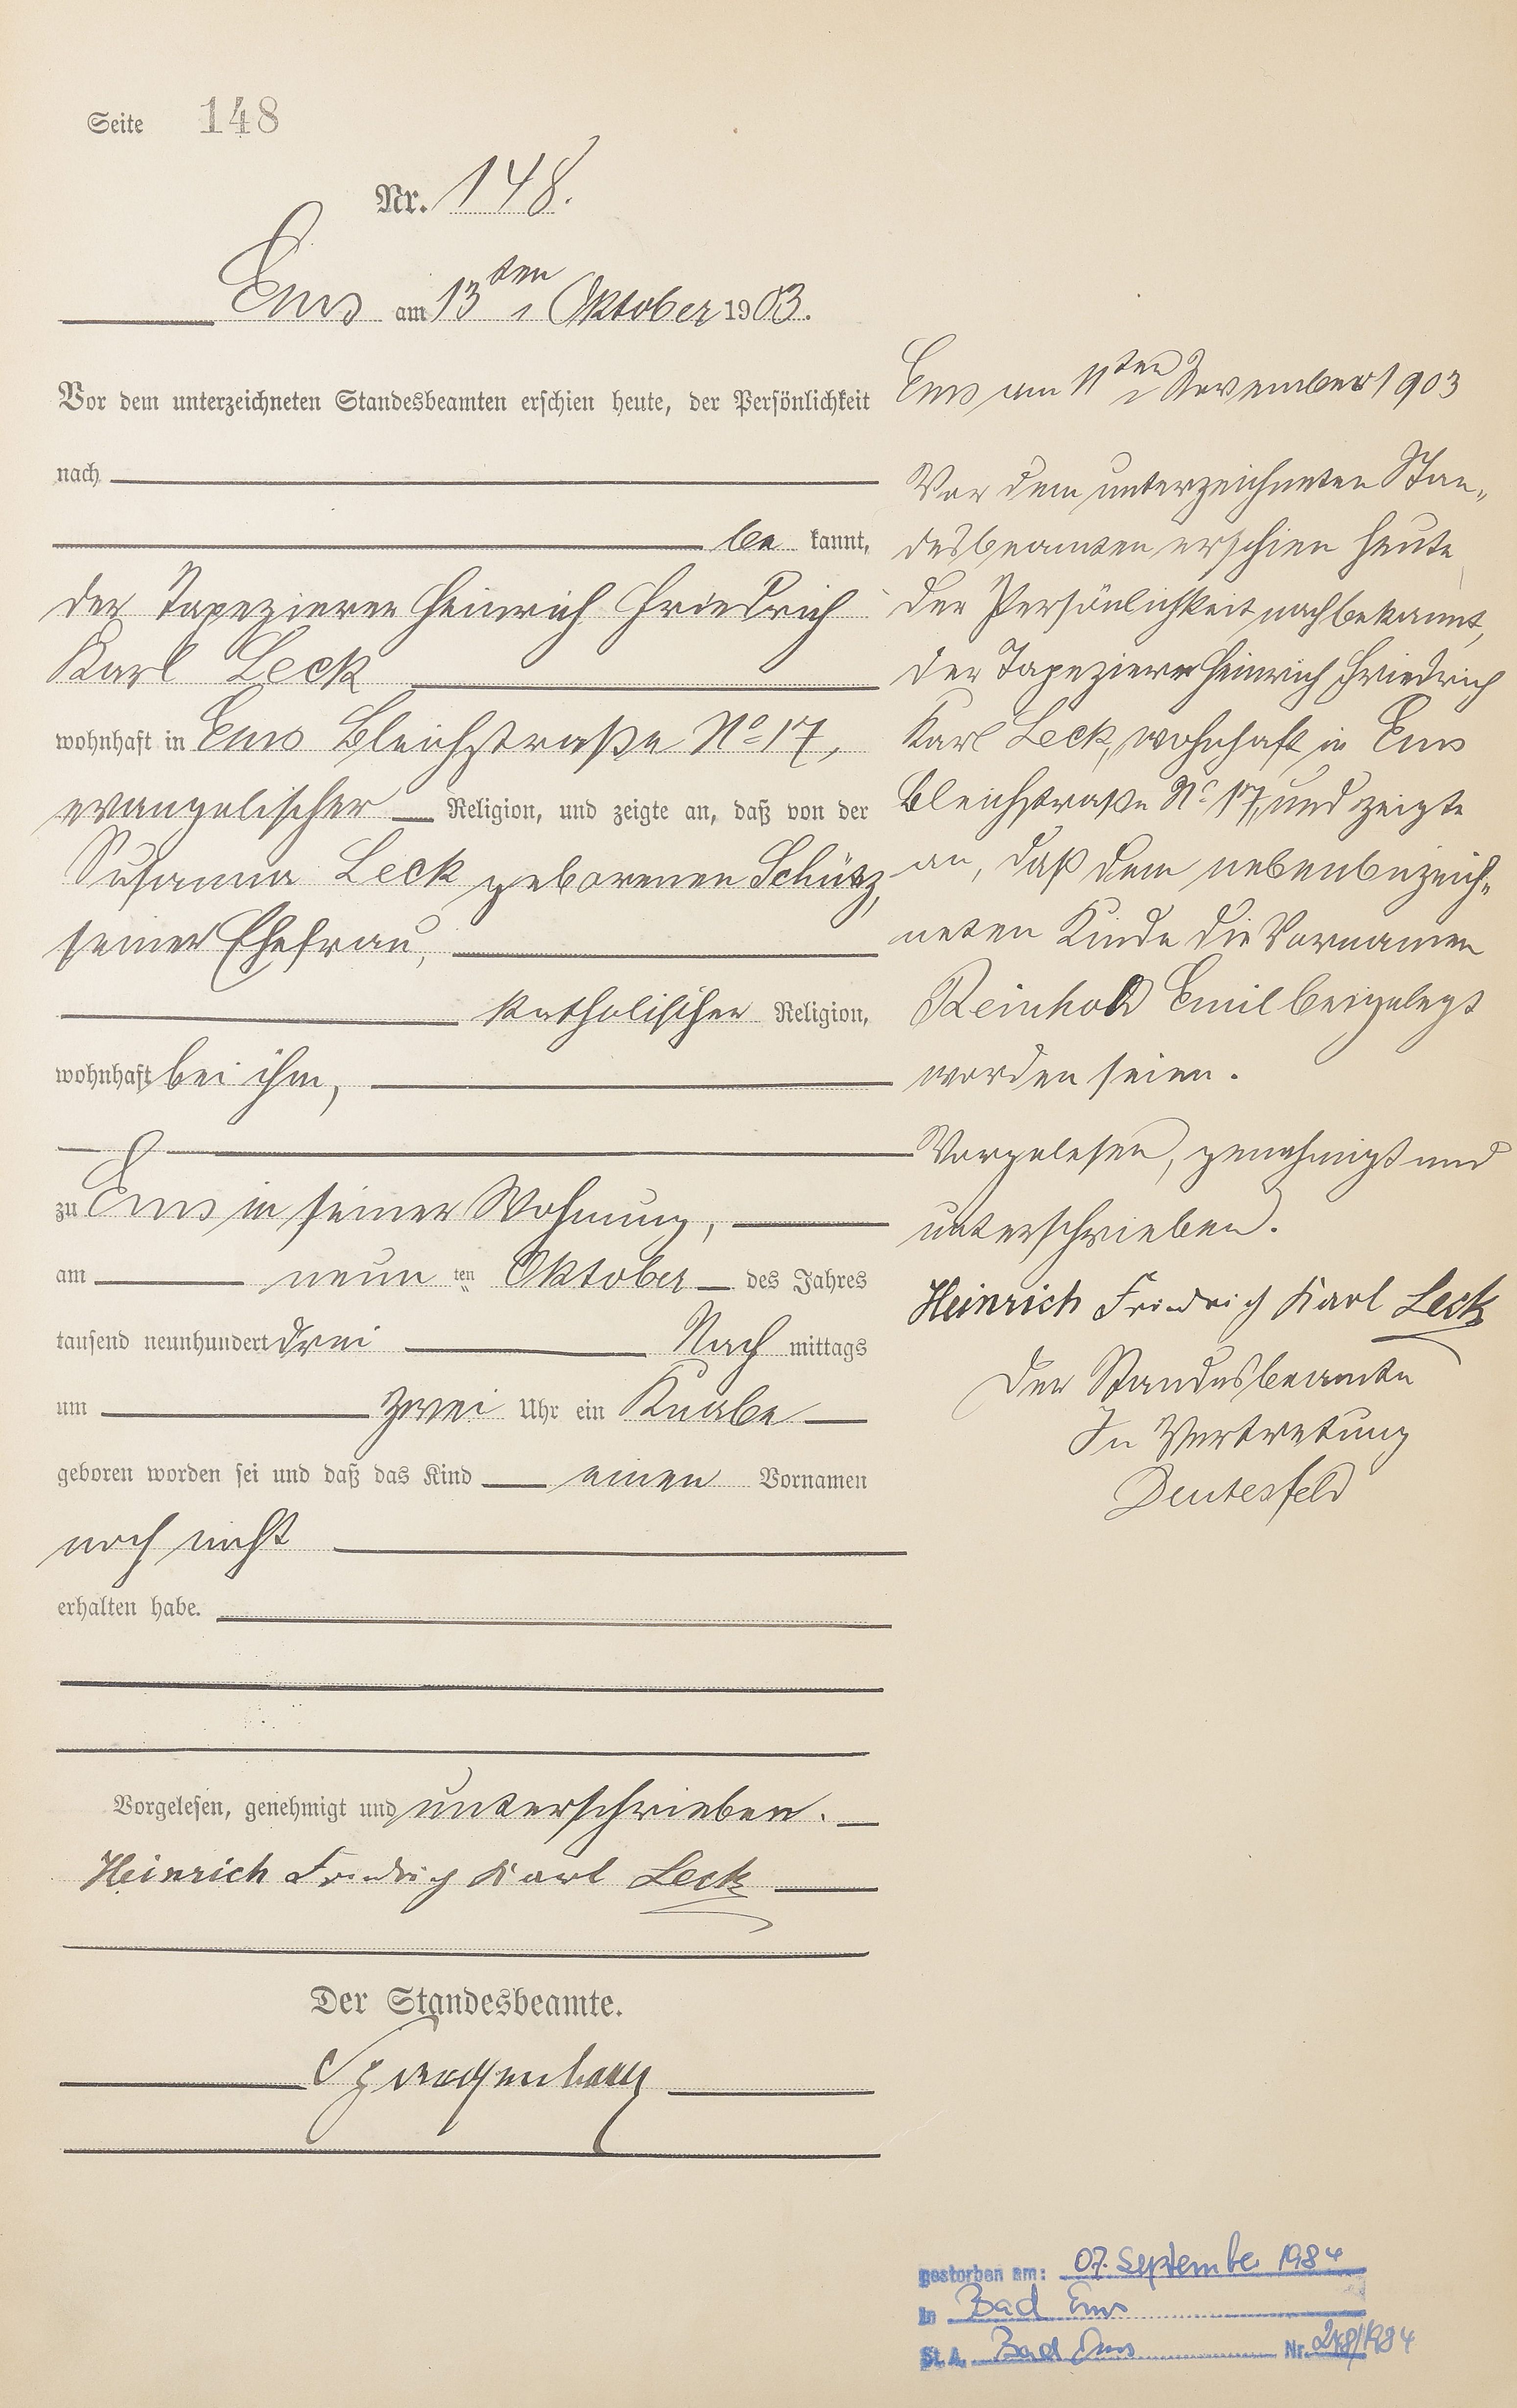 Seite 148
Nr. 148.
Ems am 13ten Oktober 1903.
Vor dem unterzeichneten Standesbeamten erschien heute, der Persönlichkeit
nach
be kannt,
der Tapezierer Heinrich Friedrich
Karl Leck
wohnhaft in Ems Bleichstraße No 17,
evangelischer Religion, und zeigte an, daß von der
Susanna Leck geborenen Schütz,
seiner Ehefrau,
katholischer Religion,
wohnhaft bei ihm,
zu Ems in seiner Wohnung,
am neun ten Oktober des Jahres
tausend neunhundert drei Nach mittags
um zwei Uhr ein Knabe
geboren worden sei und daß das Kind einen Vornamen
noch nicht
erhalten habe.
Vorgelesen, genehmigt und unterschrieben.
Heinrich Friedrich Karl Leck
Der Standesbeamte.
Ems am 11ten November 1903
Vor dem unterzeichneten Stan„
desbeamten erschien heute,
der Persönlichkeit nach bekannt,
der Tapezierer Heinrich Friedrich
Karl Leck, wohnhaft in Ems
Bleichstraße No 17, und zeigte
an, daß dem nebenbezeich„
neten Kinde die Vornamen
Reinhold Emil beigelegt
worden seien.
Vorgelesen, genehmigt und
unterschrieben.
Heinrich Friedrich Karl Leck
Der Standesbeamte
In Vertretung
Deutesfeld
gestorben am: 07. September 1984
in Bad Ems
St. A. Bad Ems Nr. 248/1984